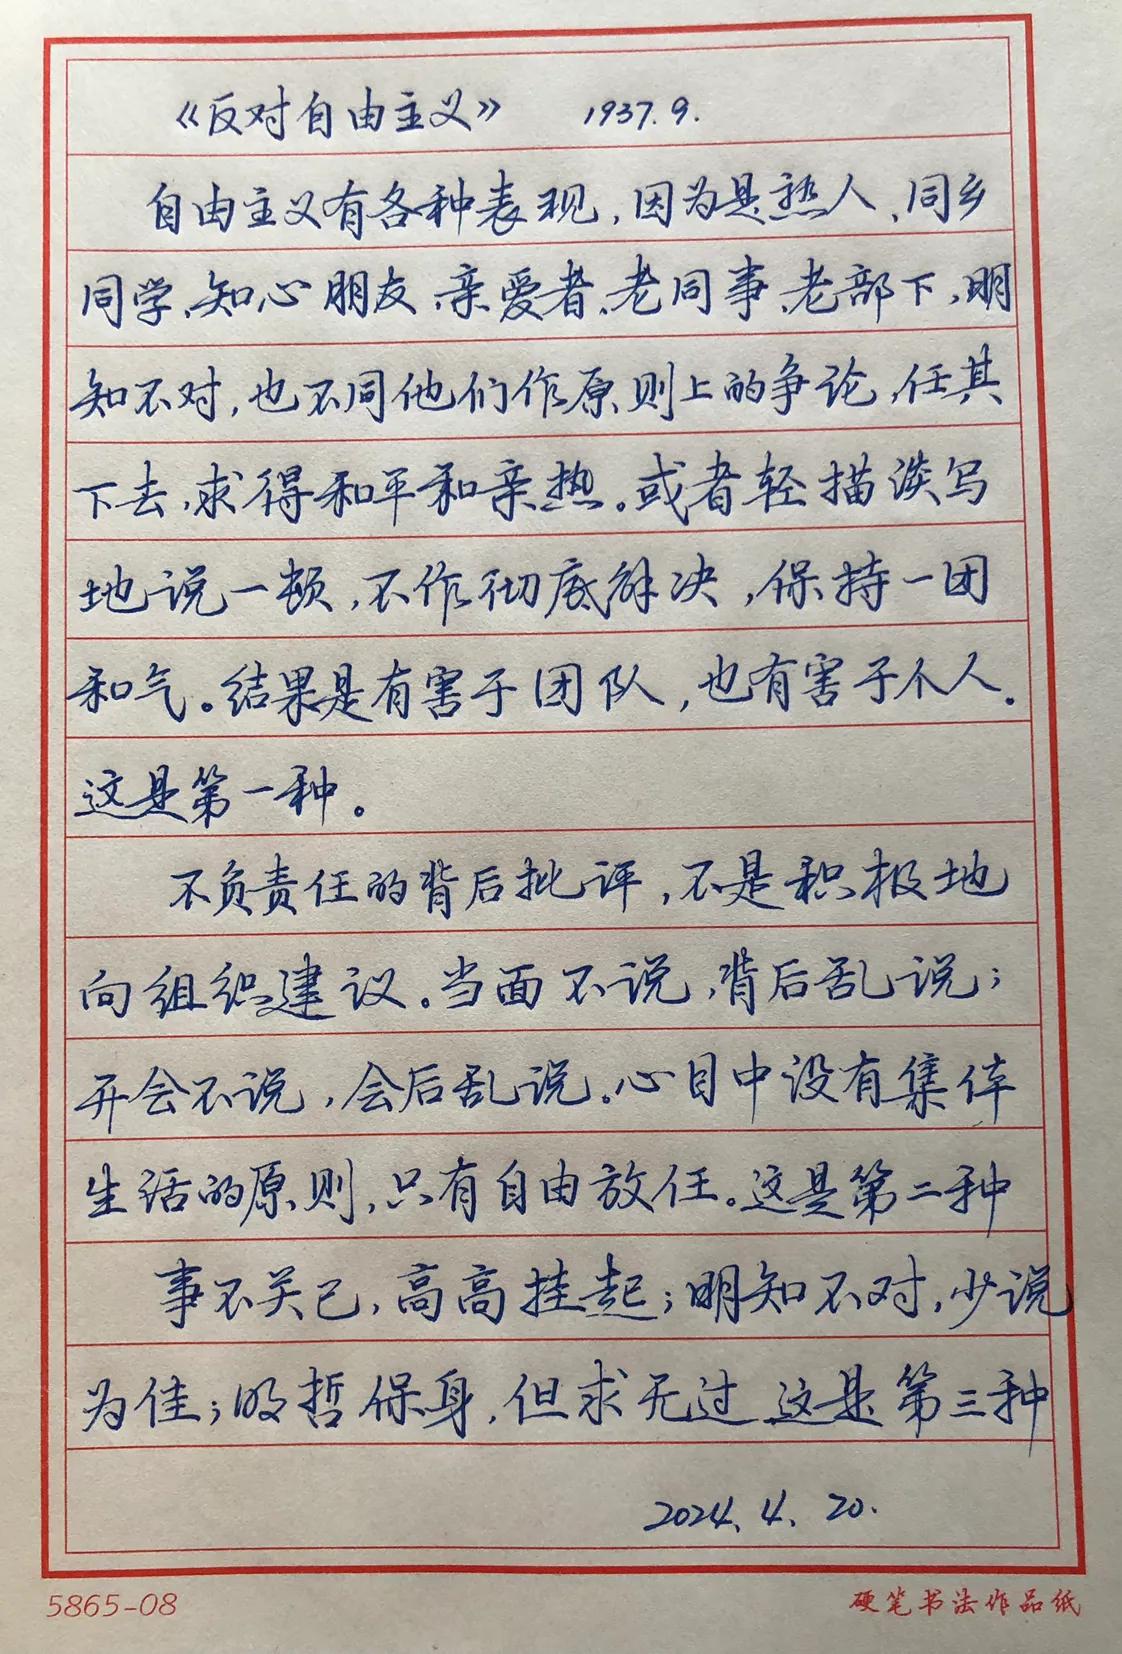 《反对自由主义》 1937.9.
自由主义有各种表现，因为是熟人、同乡
同学、知心朋友、亲爱者、老同事、老部下，明
知不对，也不同他们作原则上的争论，任其
下去，求得和平和亲热。或者轻描淡写
地说一顿，不作彻底解决，保持一团
和气。结果是有害于团队，也有害于个人.
这是第一种。
不负责任的背后批评，不是积极地
向组织建议。当面不说，背后乱说；
开会不说，会后乱说。心目中没有集体
生活的原则，只有自由放任。这是第二种
事不关己，高高挂起；明知不对，少说
为佳；明哲保身，但求无过 这是第三种
2024、4、20.
5865-08
硬笔书法作品纸